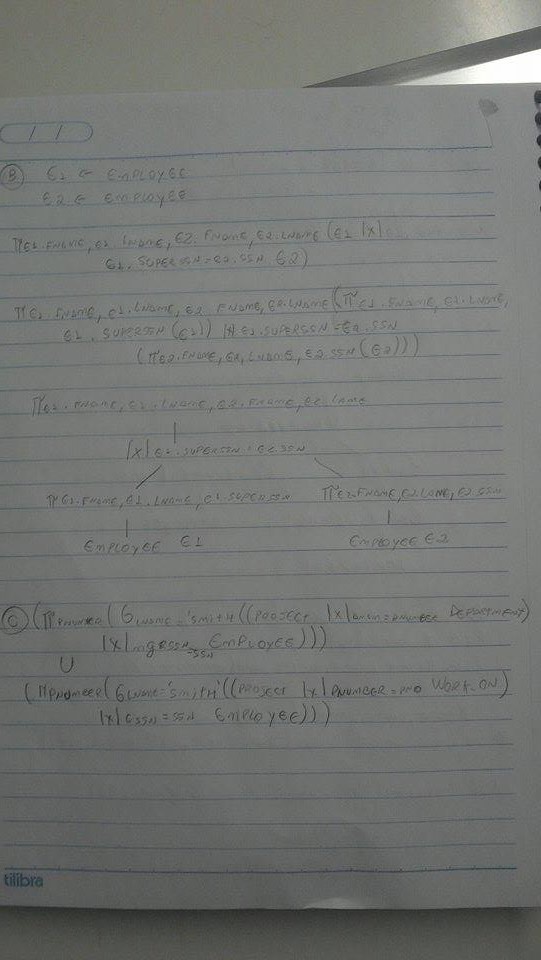 / /
Ⓑ E1 ← EMPLOYEE
E2 ← EMPLOYEE
π E1.FNAME, E1.LNAME, E2.FNAME, E2.LNAME (E1 |X|
E1.SUPERSSN=E2.SSN E2)
π E1.FNAME, E1.LNAME, E2.FNAME, E2.LNAME (π E1.FNAME, E1.LNAME,
E1.SUPERSSN (E1)) |X| E1.SUPERSSN=E2.SSN
(π E2.FNAME, E2.LNAME, E2.SSN (E2)))
π E1.FNAME, E1.LNAME, E2.FNAME, E2.LNAME
|X| E1.SUPERSSN=E2.SSN
π E1.FNAME, E1.LNAME, E1.SUPERSSN π E2.FNAME, E2.LNAME, E2.SSN
EMPLOYEE E1 EMPLOYEE E2
Ⓒ (π PNUMBER (σ LNAME='SMITH' ((PROJECT |X| DNUM=DNUMBER DEPARTMENT)
|X| MGRSSN=SSN EMPLOYEE)))
U
(π PNUMBER (σ LNAME='SMITH' ((PROJECT |X| PNUMBER=PNO WORK_ON)
|X| ESSN=SSN EMPLOYEE)))
tilibra